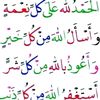 الْحَمْدُ لِلّٰهِ عَلَى كُلِّ نِعْمَةٍ
وَأَسْأَلُ اللّٰهَ مِنْ كُلِّ خَيْرٍ
وَأَعُوذُ بِاللّٰهِ مِنْ كُلِّ شَرٍّ
أَسْتَغْفِرُ اللّٰهَ مِنْ كُلِّ